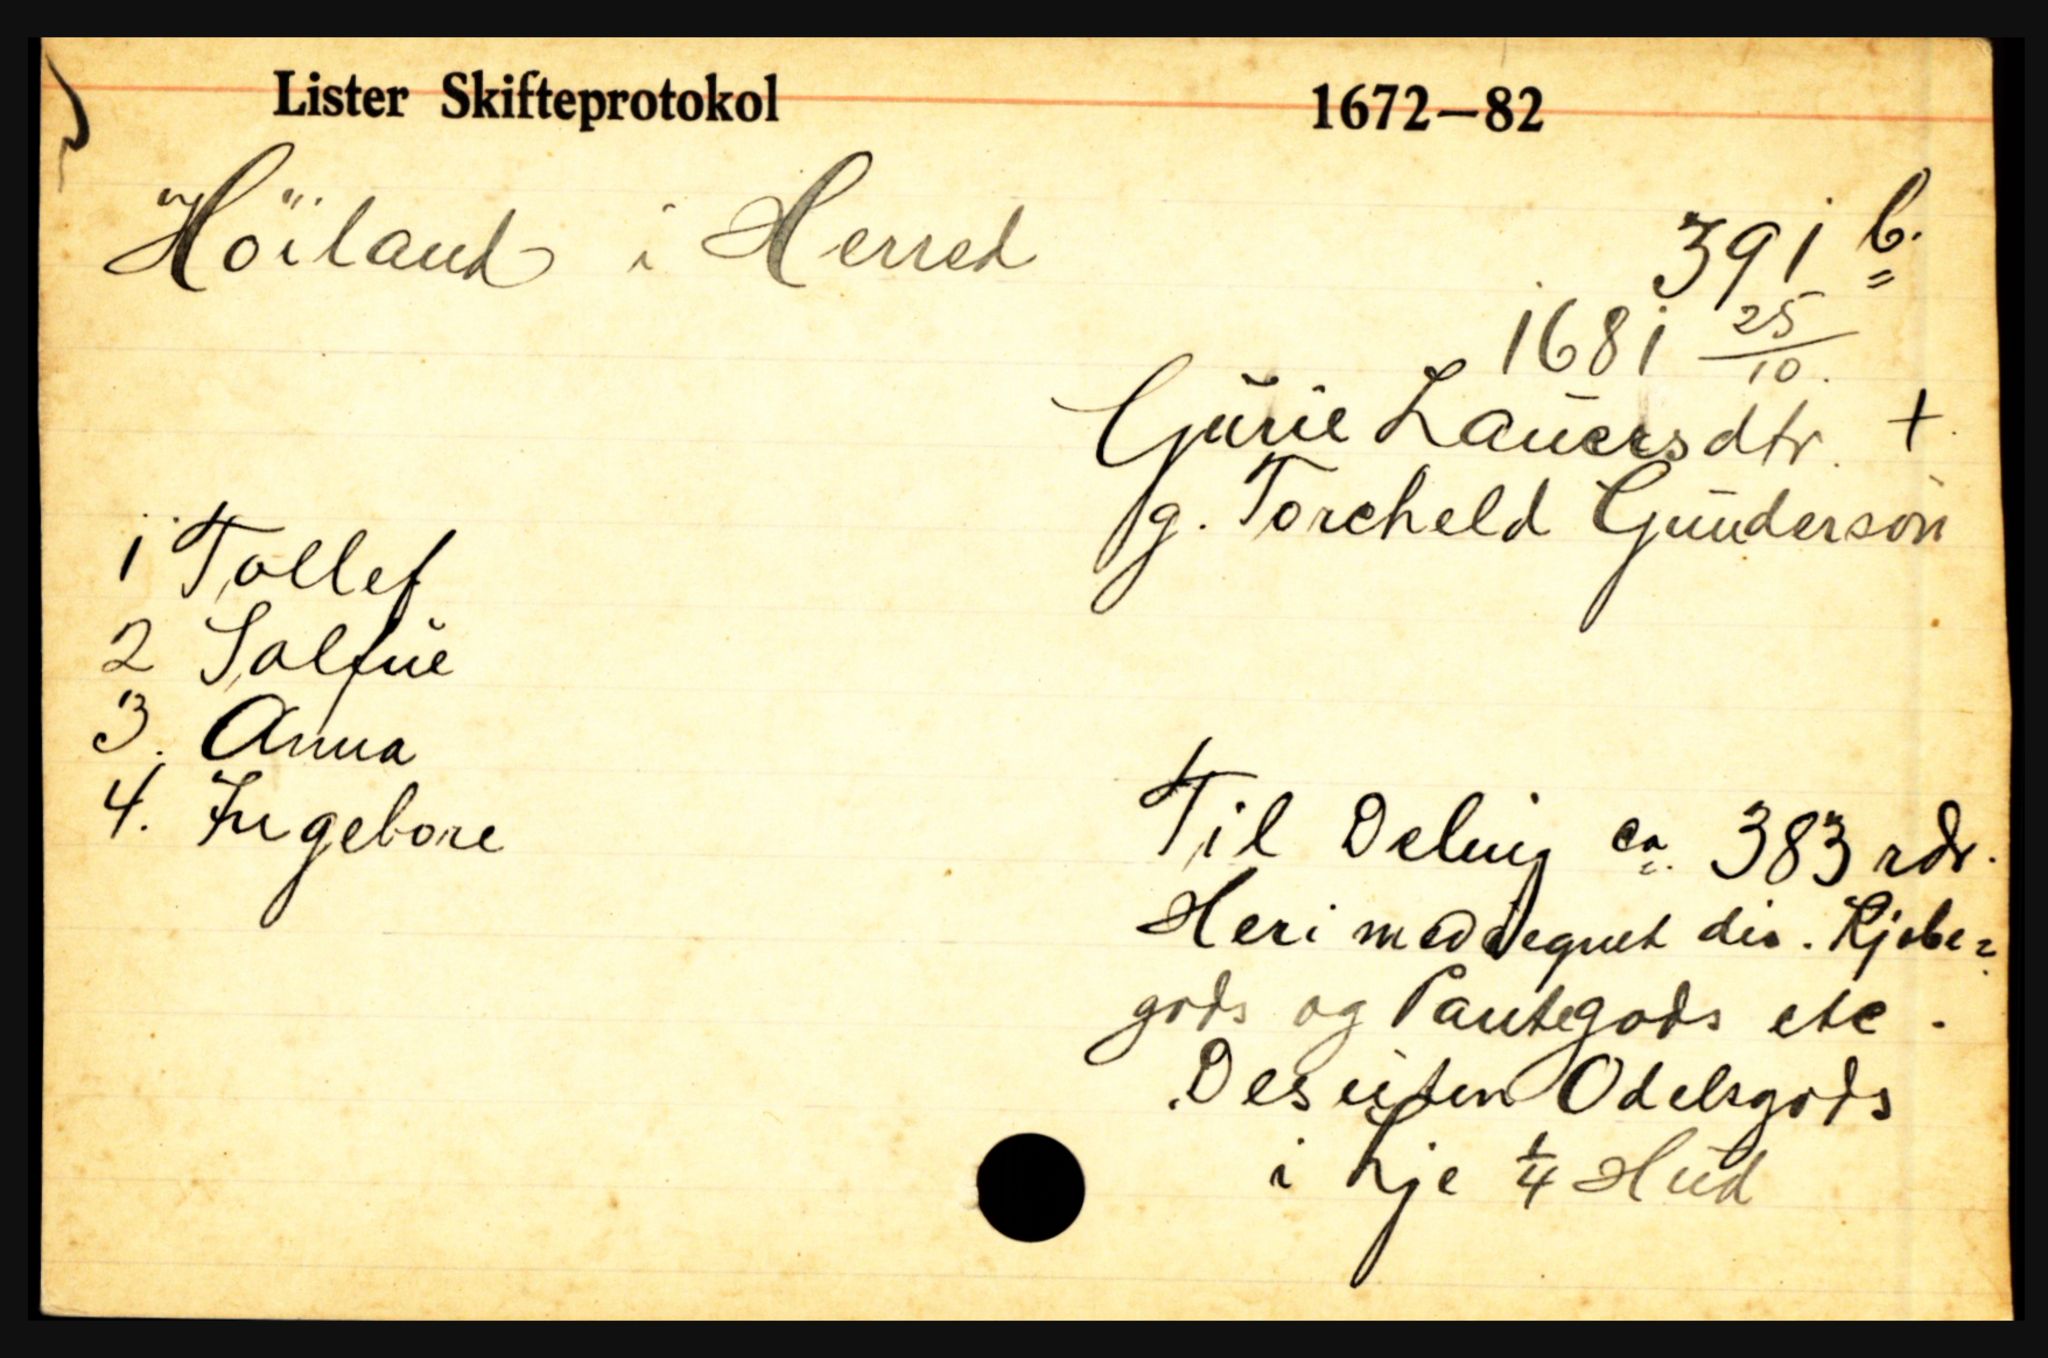 Lister Skifteprotokol 1672–82
Höiland i Herred
391 b.
1681 25/10.
Gurie Lauersdtr. +
g. Torcheld Gunderson
1 Tollef
2 Solfue
3. Anna
4. Ingebore
Til Deling ca. 383 rdr.
Heri medregnet div. Kjøbe=
gods og Pantegods etc.
Desuten Odelsgods
i Lje 1/4 Hud